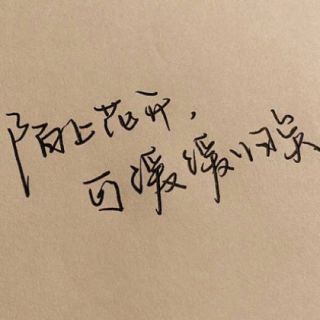 陌上花开，
可缓缓归矣